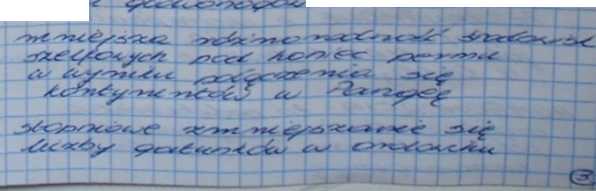 mniejsza różnorodność środowisk
szelfowych pod koniec permu
w wyniku połączenia się
kontynentów w Pangeę
stopniowe zmniejszanie się
liczby gatunków w ordowiku
3